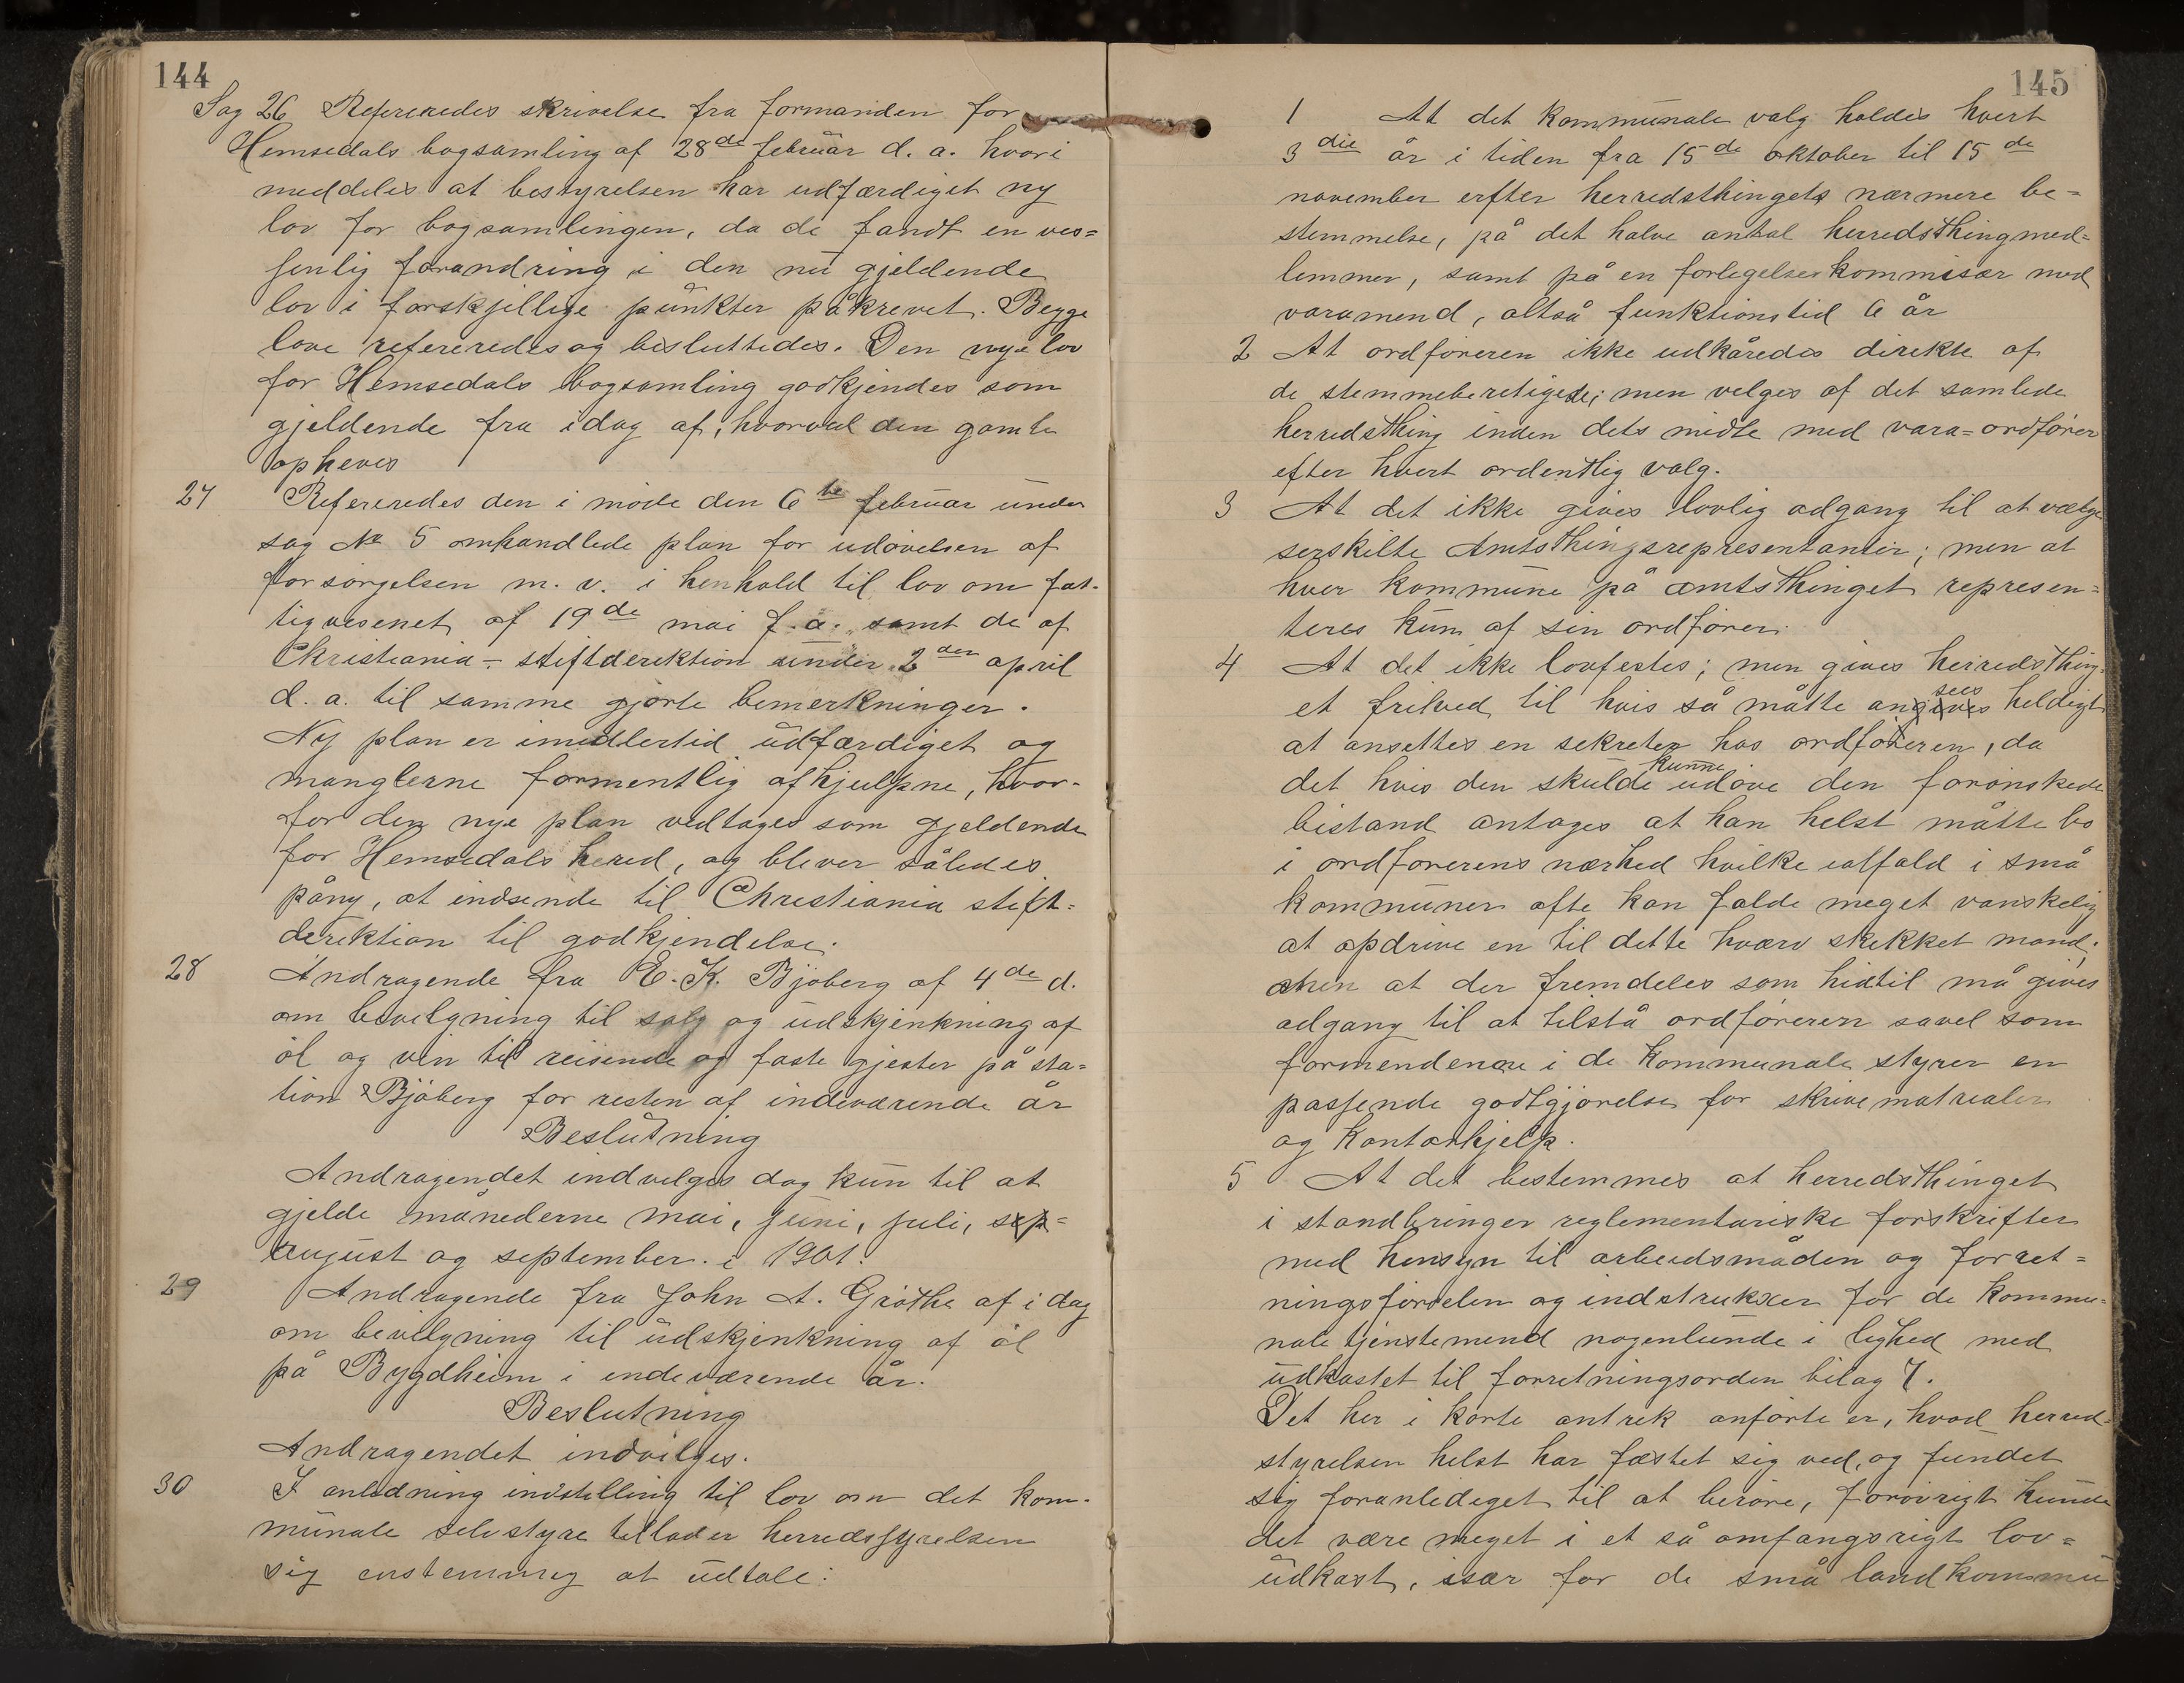 144
Sag 26 Refereredes skrivelse fra formanden for
Hemsedals bogsamling af 28de februar d. a. hvori
meddeles at bestyrelsen har udfærdiget ny
lov for bogsamlingen, da de fandt en ves=
senlig forandring i den nu gjeldende
lov i forskjellige punkter påkrevet. Begge
love refereredes og besluttedes. Den nye lov
for Hemsedals bogsamling godkjendes som
gjeldende fra idag af, hvorved den gamle
opheves
27 Refereredes den i møde den 6te februar under
sag No 5 omhandlede plan for udøvelsen af
forsørgelsen m. v. i henhold til lov om fat-
tigvesenet af 19de mai f. a. samt de af
Christiania - stiftderektion under 2den april
d. a. til samme gjorte bemerkninger.
Ny plan er imidlertid udfærdiget og
manglerne formentlig afhjulpne, hvor-
for den nye plan vedtages som gjeldende
for Hemsedals hered, og blever således
påny, at indsende til Christiania stift=
derektion til godkjendelse.
28 Andragende fra E. K. Bjøberg af 4de d.
om bevilgning til salg og udskjenkning af
øl og vin til reisende og faste gjester på sta=
tion Bjøberg for resten af indeværende år
Beslutning
Andragendet indvelges dog kun til at
gjelde månederne mai, juni, juli, sep=
august og september i 1901.
29 Andragende fra John A. Grøthe af i dag
om bevilgning til udskjenkning af øl
på Bygdheim i indeværende år.
Beslutning
Andragendet indvilges.
30 I anledning indstilling til lov om det kom-
munale selvstyre tillader herredssyrelsen
sig enstemmig at udtale:
145
1 At det kommunale valg holdes hvert
3die år i tiden fra 15de oktober til 15de
november erfter herredsthingets nærmere be=
stemmelse, på det halve antal herredsthingmed=
lemmer, samt på en forlegelseskommisær med
varamend, altså funktionstid 6 år
2 At ordføreren ikke udkåredes direkte af
de stemmeberetigede; men velges af det samlede
herredsthing inden dets midte med vara=ordfører
efter hvert ordentlig valg.
3 At det ikke gives lovlig adgang til at vælge
serskilte Amtsthingsrepresentanter; men at
hver kommune på amtsthinget represen=
teres kun af sin ordfører.
4 At det ikke lovfestes; men gives herredsthing-
et frihed til hvis så måtte angives sees heldigt
at ansettes en sekreter hos ordføreren, da
det hvis den skulde kunne udøve den forønskede
bistand antages at han helst måtte bo
i ordførerens nærhed hvilke ialfald i små
kommuner ofte kan falde meget vanskelig
at opdrive en til dette hværv skekket mand;
men at der fremdeles som hidtil må gives
adgang til at tilstå ordføreren savel som
formendene i de kommunale styrer en
passende godtgjørelse for skrivematrealer
og kontorhjelp.
5 At det bestemmes at herredsthinget
i standbringer reglementariske forskrifter
med hensyn til arbeidsmåden og forret=
ningsfordelen og indstrukser for de kommu=
nale tjenstemend nogenlunde i lighed med
udkastet til forretningsorden bilag 7.
Det her i korte antrek anførte er, hvad herred=
styrelsen helst har fæstet sig ved, og fundet
sig foranlediget til at berøre, forøvrigt kunde
det være meget i et så omfangsrigt lov=
udkast, især for de små landkommu